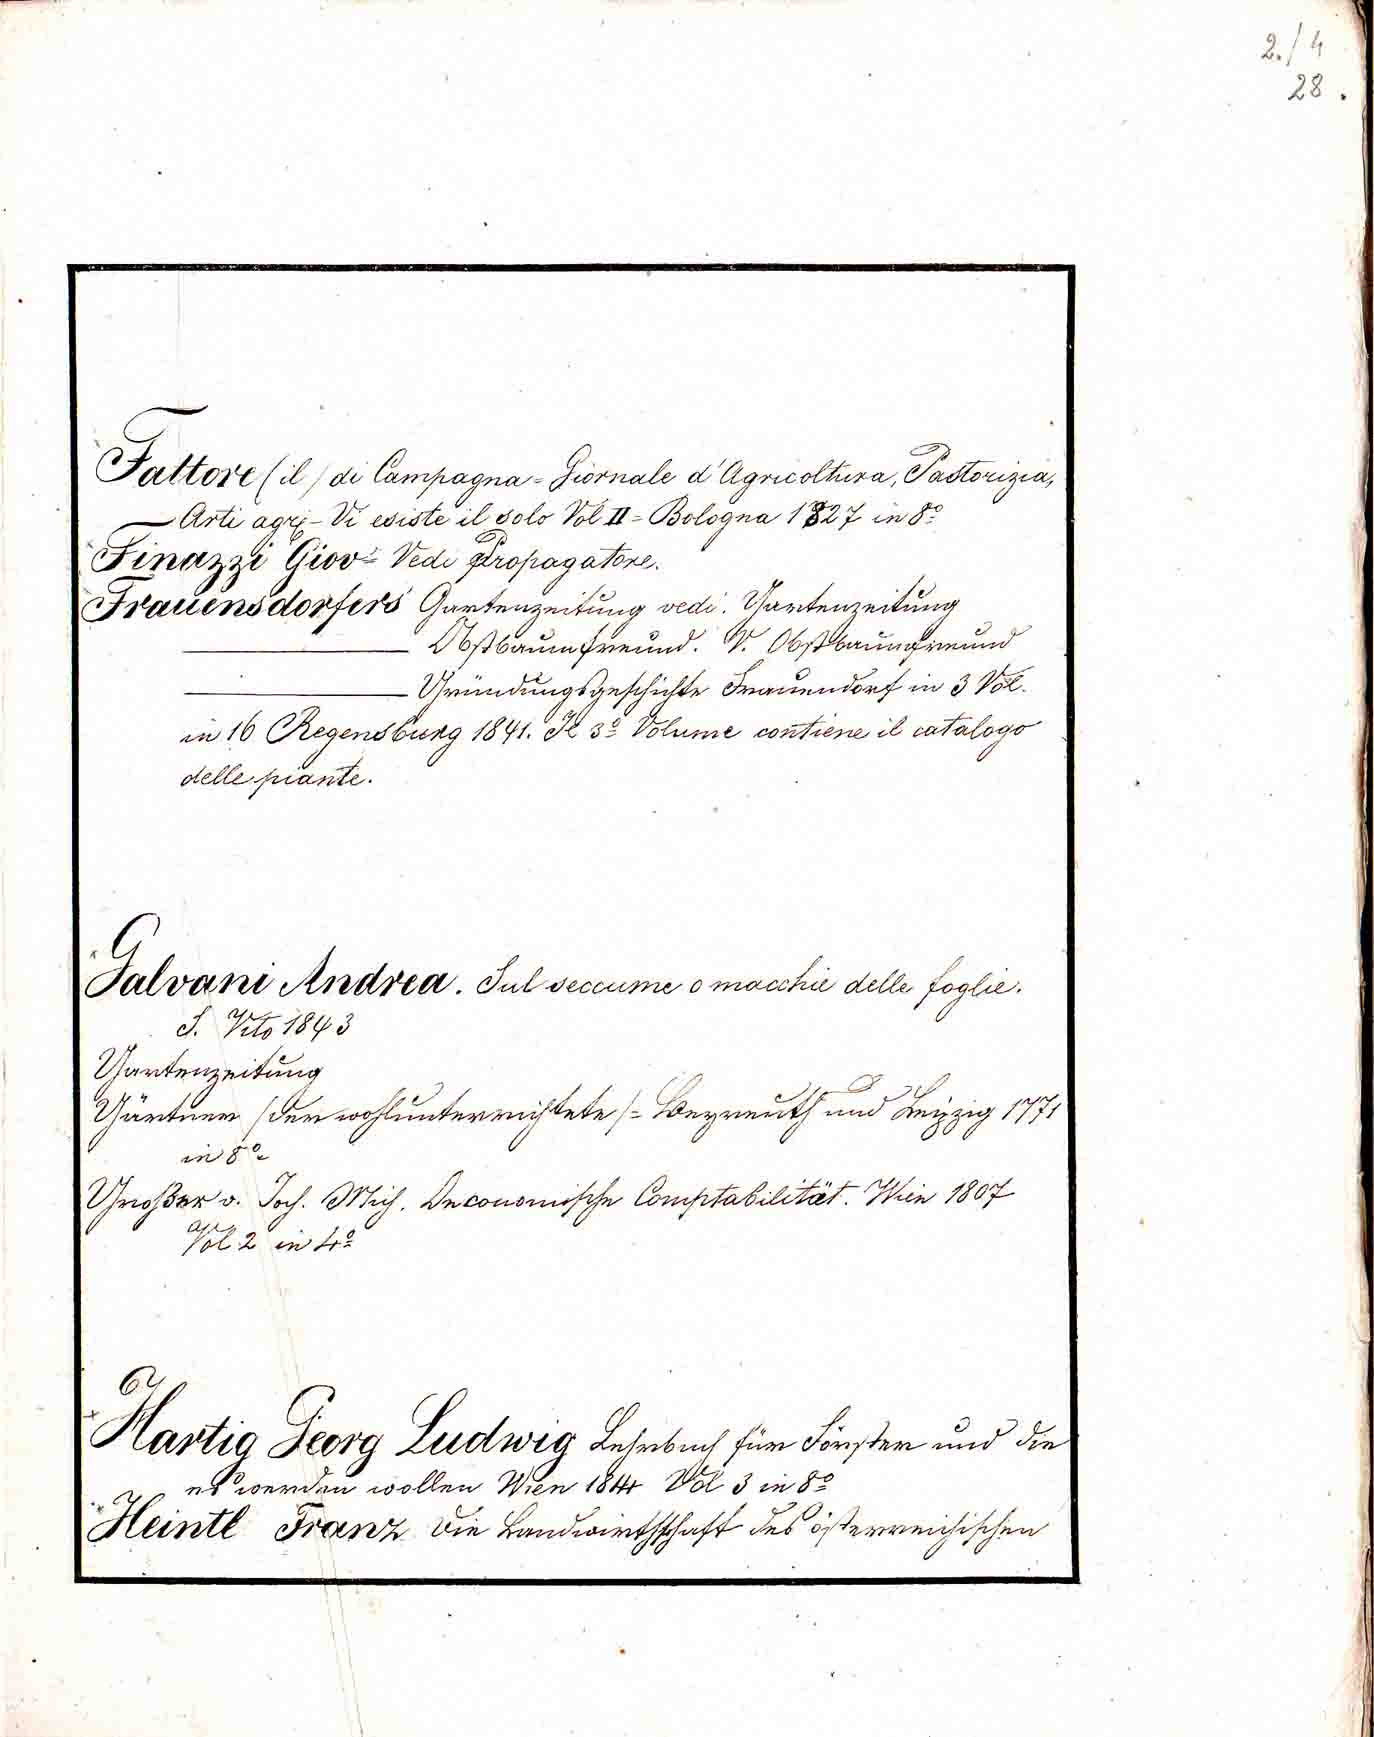 2./4
28.
Fattore (il) di Campagna = Giornale d'Agricoltura, Pastorizia,
Arti agr. - Vi esiste il solo Vol II = Bologna 1827 in 8º
Finazzi Giov. Vedi Propagatore.
Frauensdorfers Gartenzeitung vedi. Gartenzeitung
Obstbaumfreund. V. Obstbaumfreund
Gründungsgeschichte Frauendorf in 3 Vol.
in 16 Regensburg 1841. Il 3º Volume contiene il catalogo
delle piante.
Galvani Andrea. Sul seccume o macchie delle foglie.
S. Vito 1843
Gartenzeitung
Gärtner (der wohlunterrichtete) = Beyreuth und Leipzig 1771
in 8º
Großer v. Joh. Mich. Oeconomische Comptabilität. Wien 1807
Vol 2 in 4º
Hartig Georg Ludwig Lehrbuch für Förster und die
es werden wollen Wien 1814 Vol 3 in 8º
Heintl Franz Die Landwirthschaft des österreichischen